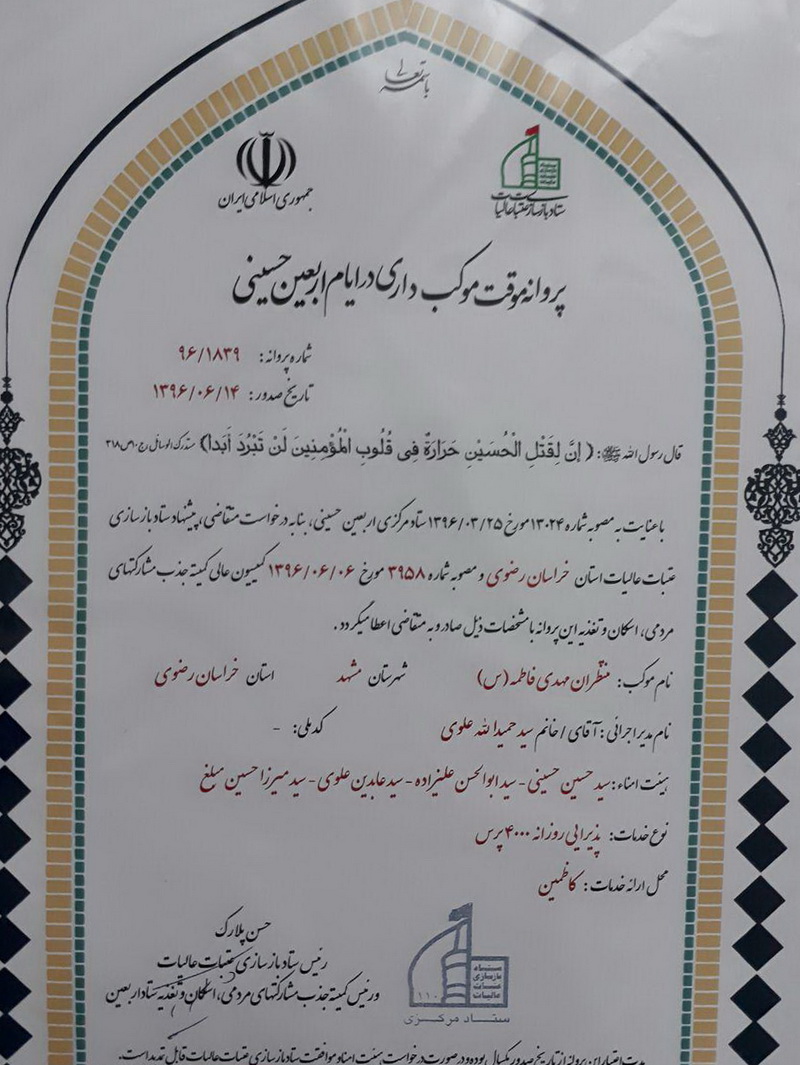 باسمه تعالی
جمهوری اسلامی ایران
ستاد بازسازی عتبات عالیات
پروانه موقت موکب داری در ایام اربعین حسینی
شماره پروانه: ۹۶/۱۸۳۹
تاریخ صدور: ۱۳۹۶/۰۶/۱۴
قال رسول الله ﷺ: ( إنَّ لِقَتْلِ الْحُسَيْنِ حَرَارَةً فِي قُلُوبِ الْمُؤْمِنِينَ لَنْ تَبْرُدَ أَبَدا) مستدرک الوسائل ج۱۰ ص۳۱۸
باعنایت به مصوبه شماره ۱۳۰۲۴ مورخ ۱۳۹۶/۰۳/۲۵ ستاد مرکزی اربعین حسینی، بنا به درخواست متقاضی، پیشنهاد ستاد بازسازی
عتبات عالیات استان خراسان رضوی و مصوبه شماره ۳۹۵۸ مورخ ۱۳۹۶/۰۶/۰۶ کمیسیون عالی کمیته جذب مشارکتهای
مردمی، اسکان و تغذیه این پروانه با مشخصات ذیل صادر و به متقاضی اعطا میگردد.
نام موکب: منتظران مهدی فاطمه (س) شهرستان مشهد استان خراسان رضوی
نام مدیر اجرائی: آقای / خانم سید حمید الله علوی کد ملی: -
هیئت امناء: سید حسین حسینی - سید ابوالحسن علیزاده - سید عابدین علوی - سید میرزا حسین مبلغ
نوع خدمات: پذیرایی روزانه ۴۰۰۰ پرس
محل ارائه خدمات: کاظمین
حسن پلارک
رئیس ستاد بازسازی عتبات عالیات
و رئیس کمیته جذب مشارکتهای مردمی، اسکان و تغذیه ستاد اربعین
ستاد
بازسازی
عتبات
عالیات
۱۱۰
ستاد مرکزی
مدت اعتبار این پروانه از تاریخ صدور یکسال بوده و در صورت درخواست هیئت امناء و موافقت ستاد بازسازی عتبات عالیات قابل تمدید است.